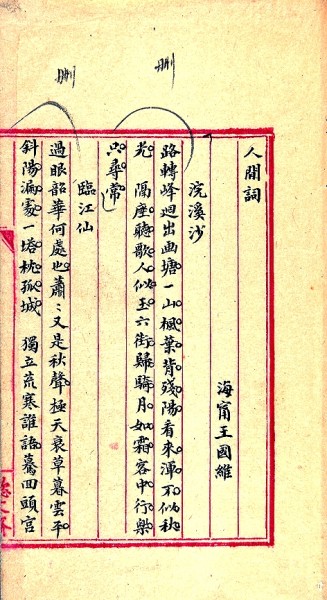 刪
刪
人間詞
海甯王國維
浣溪沙
路轉峰迴出画塘一山楓葉背殘陽看來渾不似秋
光　隔座聽歌人似玉六街歸騎月如霜客中行樂
只尋常
臨江仙
過眼韶華何處也蕭〻又是秋聲極天衰草暮雲平
斜陽漏處一塔枕孤城　獨立荒寒誰語驀回頭宮